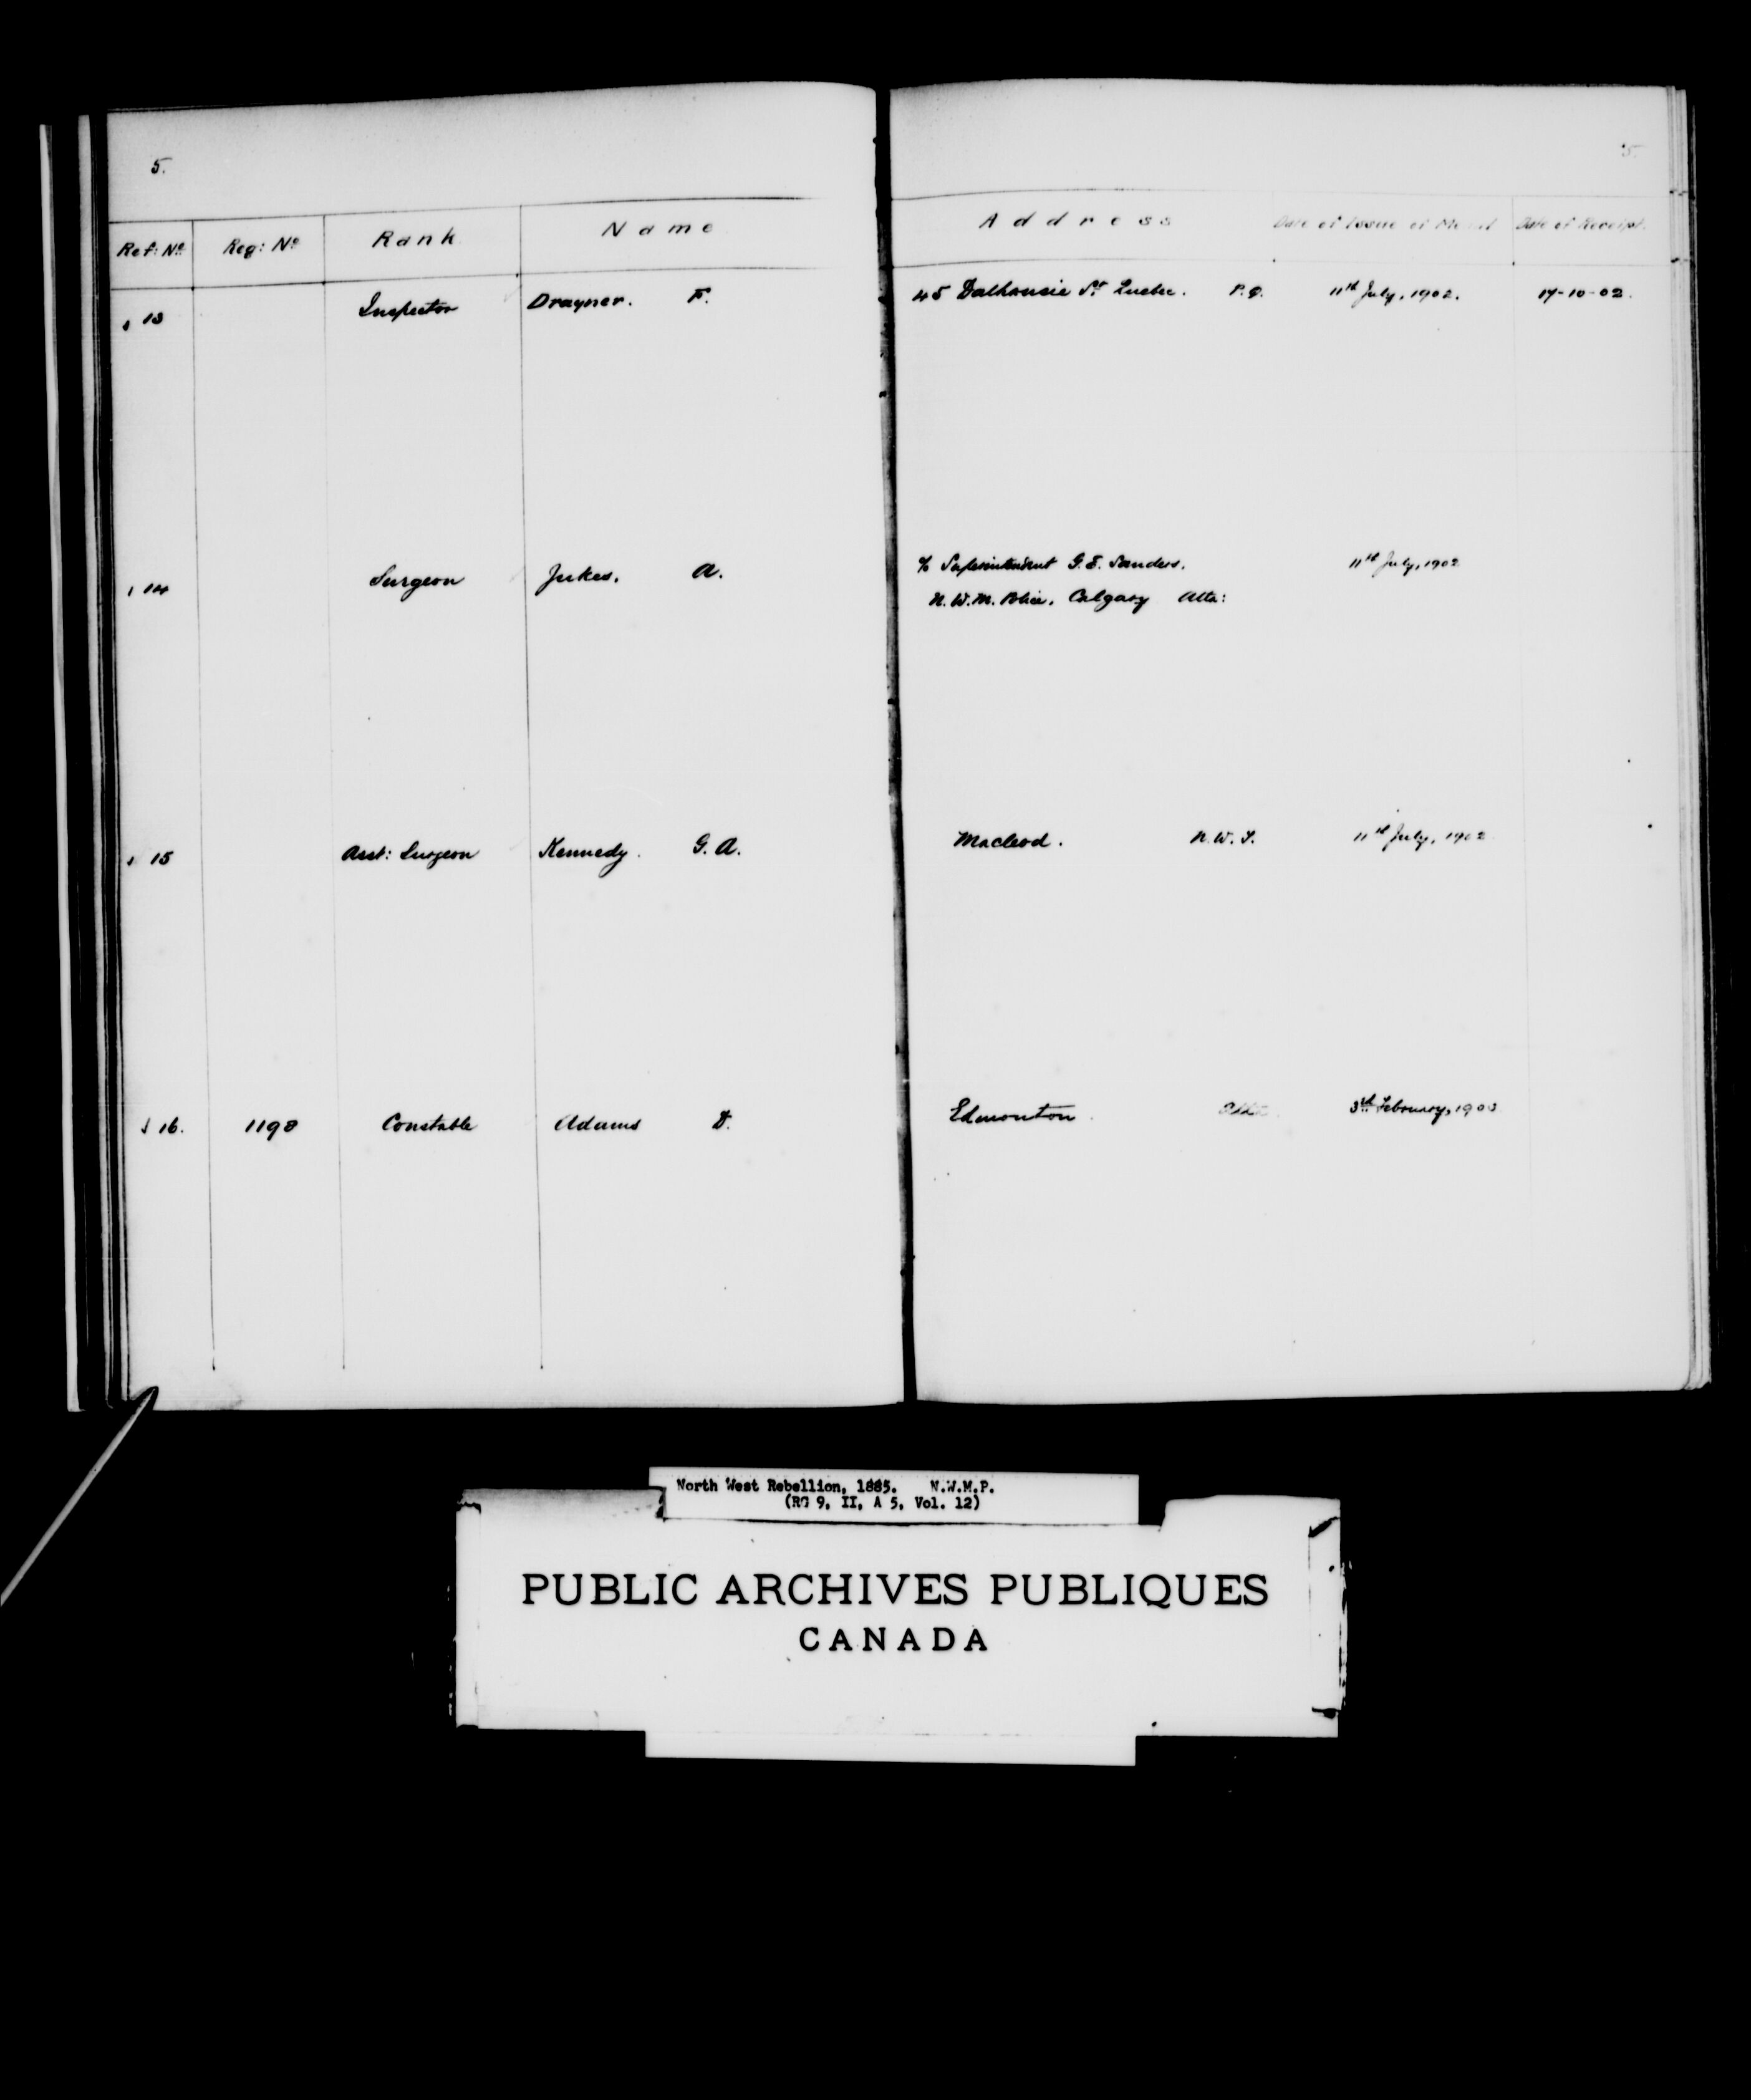 5. 5
Ref: No Reg: No Rank Name Address Date of Issue of Medal Date of Receipt.
13 Inspector Drayner. F. 45 Dalhousie St. Quebec. P.Q. 11th July, 1902. 17-10-02.
14 Surgeon Jukes. A. c/o Superintendent G. E. Sanders. 11th July, 1902
N. W. M. Police. Calgary Alta:
15 Asst: Surgeon Kennedy. G. A. Macleod. N. W. T. 11th July, 1902
16. 1190 Constable Adams D. Edmonton. Alta. February, 1903
North West Rebellion, 1885. N.W.M.P.
(RG 9, II, A 5, Vol. 12)
PUBLIC ARCHIVES PUBLIQUES
CANADA